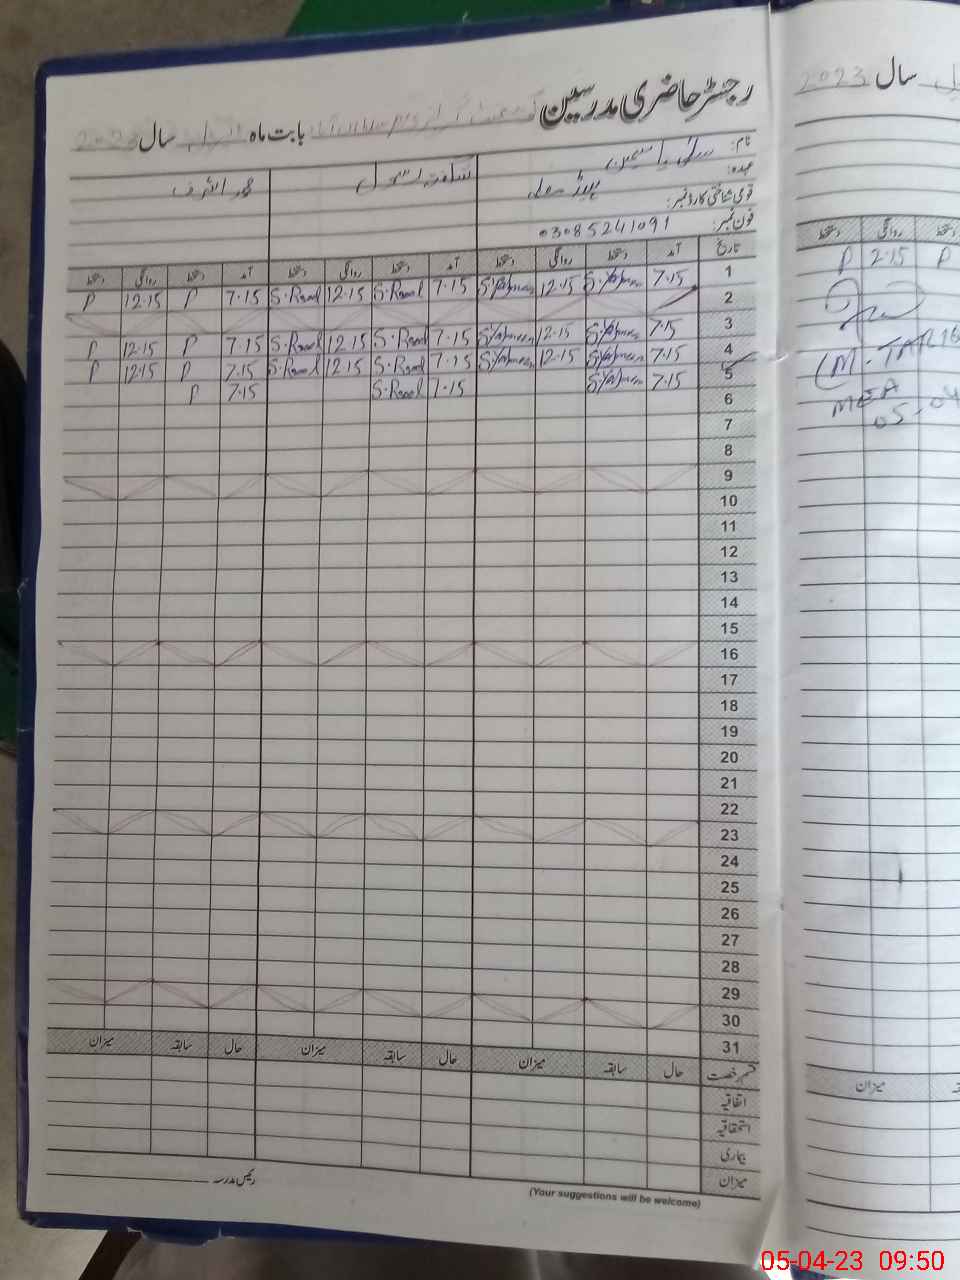 رجسٹر حاضری مدرسین
بابت ماہ سال 2023
نام:
عہدہ: ہیڈ
قومی شناختی کارڈ نمبر:
فون نمبر: 03085241091
تاریخ آمد دستخط روانگی دستخط آمد دستخط روانگی دستخط آمد دستخط روانگی دستخط
1 7.15 S.Yasmeen 12.15 S.Yasmeen 7.15 S.Rasool 12.15 S.Rasool 7.15 P 12.15 P
2
3 7.15 S.Yasmeen 12.15 S.Yasmeen 7.15 S.Rasool 12.15 S.Rasool 7.15 P 12.15 P
4 7.15 S.Yasmeen 12.15 S.Yasmeen 7.15 S.Rasool 12.15 S.Rasool 7.15 P 12.15 P
5 7.15 S.Yasmeen 7.15 S.Rasool 7.15 P
6
7
8
9
10
11
12
13
14
15
16
17
18
19
20
21
22
23
24
25
26
27
28
29
30
31
قسم رخصت حال سابقہ میزان حال سابقہ میزان حال سابقہ میزان
اتفاقیہ
استحقاقیہ
بیماری
میزان
رئیس مدرسہ
(Your suggestions will be welcome)
سال 2023
دستخط روانگی دستخط
P 2.15 P
(M. TARIQ
MEA
05-04
میزان
05-04-23 09:50